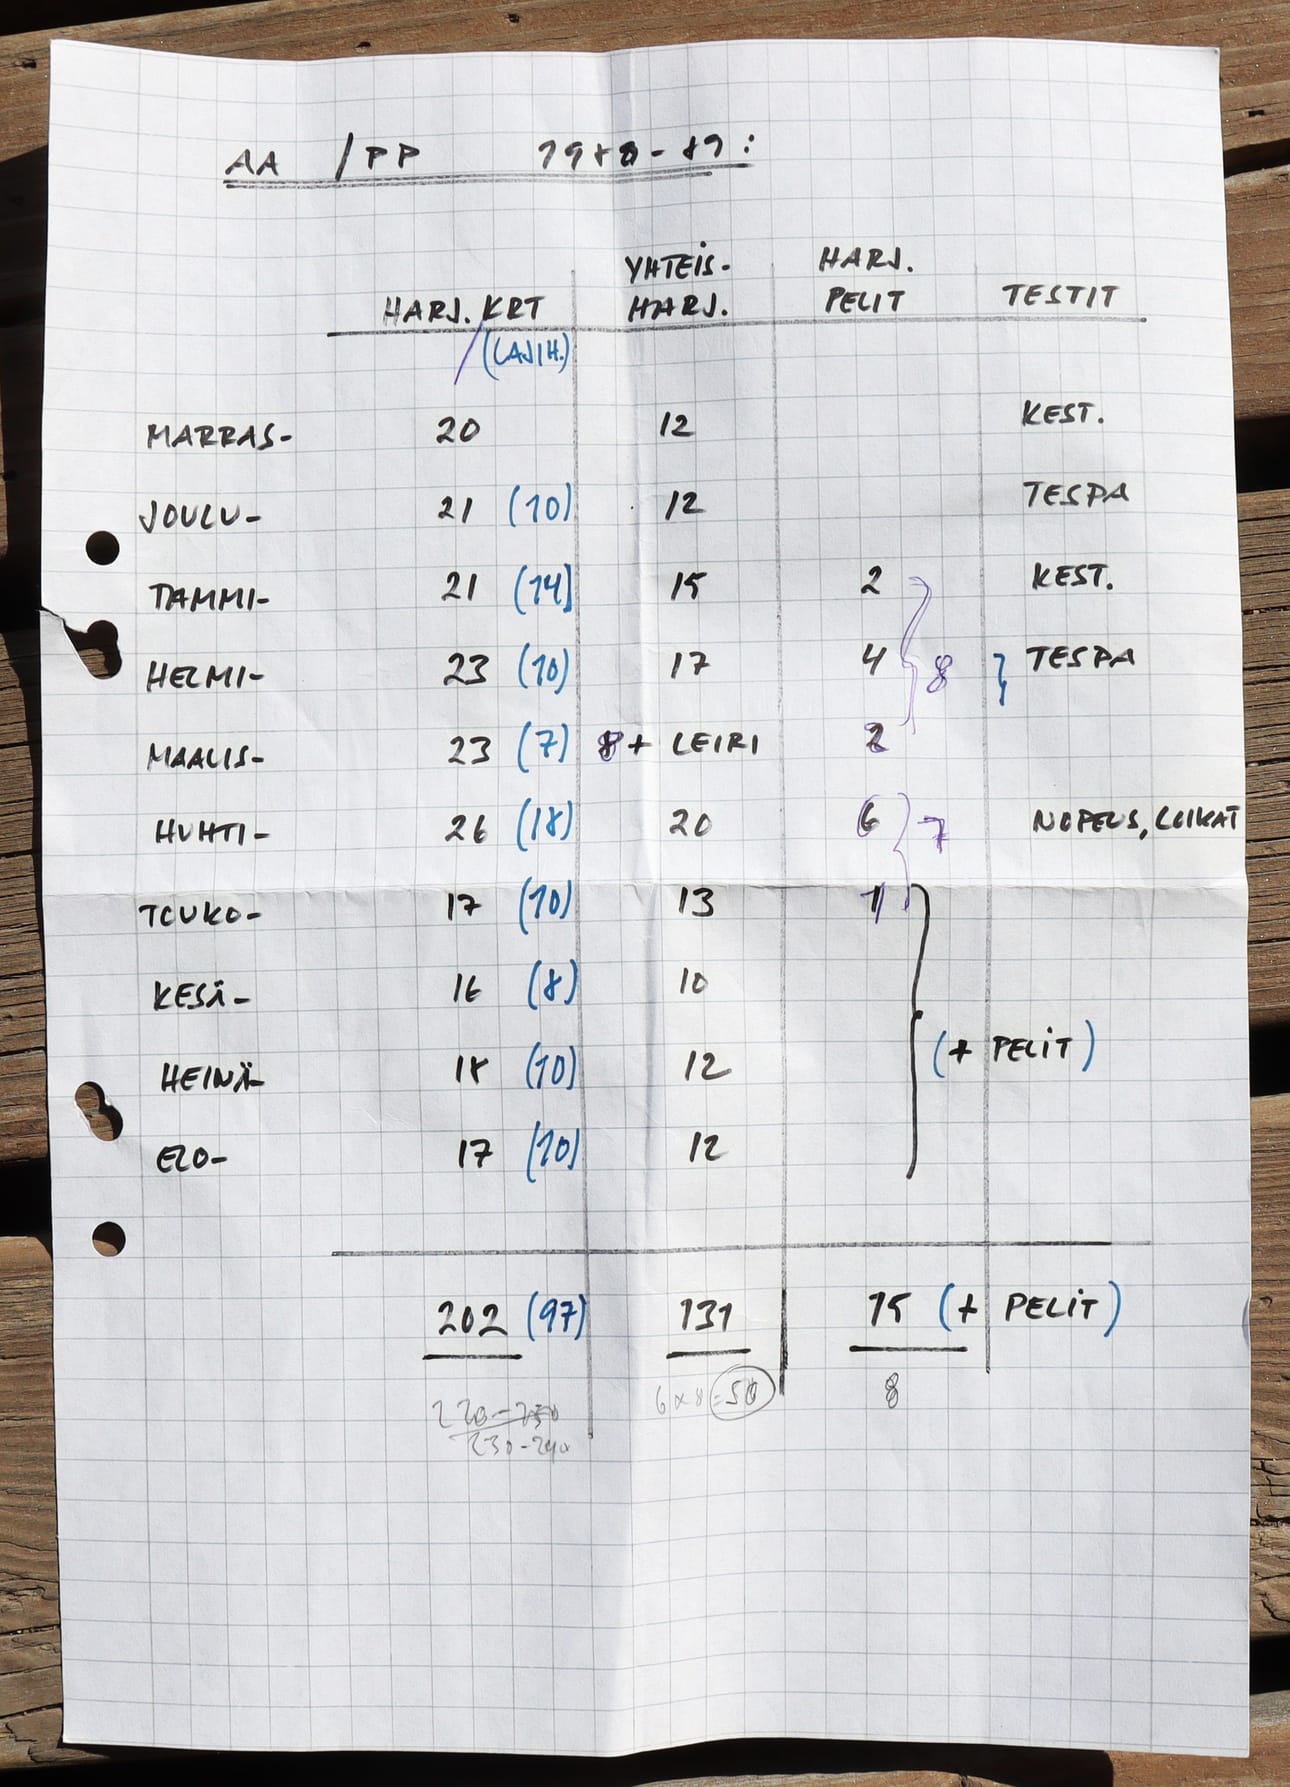 AA / PP 1988-89:
YHTEIS- HARJ.
HARJ. KRT HARJ. PELIT TESTIT
/(LAJIH.)
MARRAS- 20 12 KEST.
JOULU- 21 (10) 12 TESPA
TAMMI- 21 (14) 15 2 KEST.
HELMI- 23 (10) 17 4 } 8 } TESPA
MAALIS- 23 (7) 8 + LEIRI 2
HUHTI- 26 (18) 20 6 } 7 NOPEUS, LOIKAT
TOUKO- 17 (10) 13 1
KESÄ- 16 (8) 10
(+ PELIT)
HEINÄ- 18 (10) 12
ELO- 17 (10) 12
202 (97) 131 15 (+ PELIT)
6x8=50 8
220-250
230-240